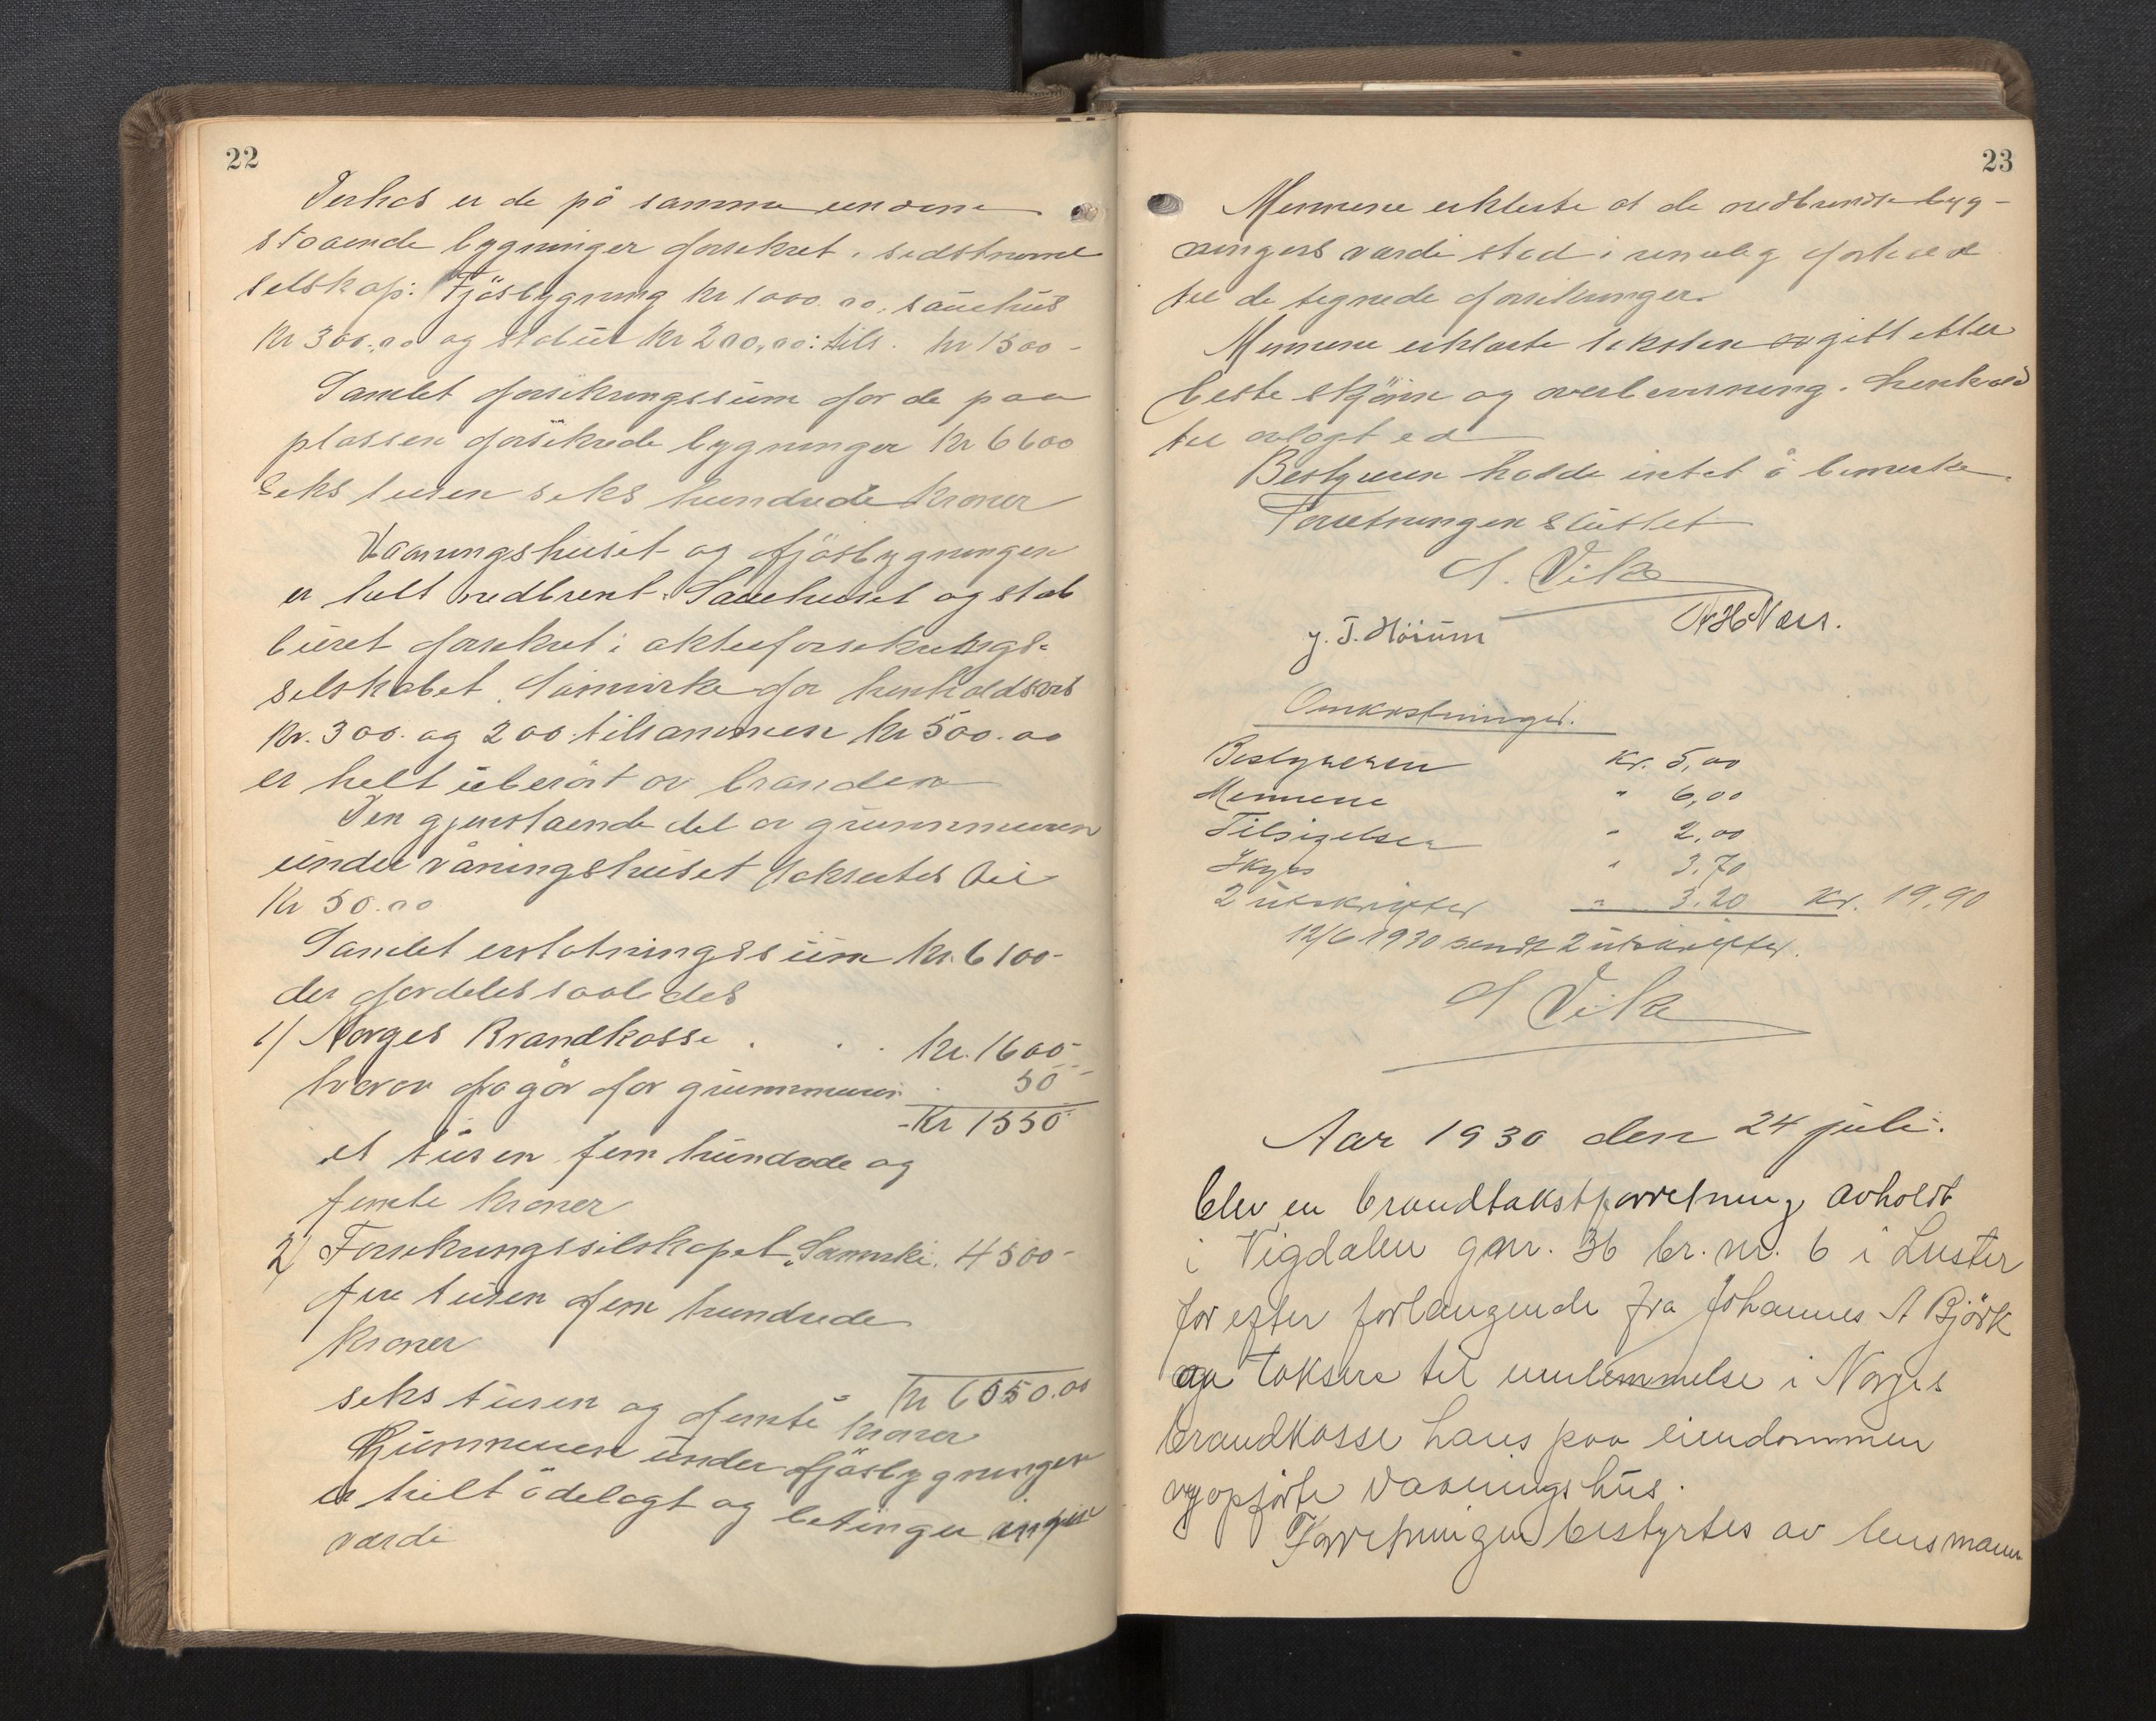 22
Derhos er de på samme eiendom
staaende bygninger forsikret i sidstnevnte
selskap: Fjösbygning kr 1000.00, sauehus
kr 300.00 og stabur kr 200,00: tils. kr 1500-
Samlet forsikringssum for de paa
plassen forsikrede bygninger kr 6600
seks tusen seks hundrede kroner
Vaaningshuset og fjösbygningen
er helt nedbrent. Sauehuset og stab
buret forsikret i aktieforsikrings-
selskabet Samvirke for henholdsvis
kr. 300. og 200 tilsammen kr 500.00
er helt uberört av branden
Den gjenstaaende del av grunnmuren
under våningshuset taksertes til
kr 50.00
Samlet erstatningssum kr. 6100-
der fordeles saaledes
1) Norges Brandkasse . . . kr. 1600-
hvorav fragår for grunnmuren . 50-
kr 1550-
et tusen fem hundrede og
femti kroner
2) Forsikringsselskapet "Samvirke" 4500-
fire tusen fem hundrede
kroner
kr 6050.00
seks tusen og femti kroner
Grunnmuren under fjösbygningen
er helt ödelagt og betinger ingen
værdi
23
Mennene erklærte at de nedbrendte byg-
ningers værdi stod i rimelig forhold
til de tegnede forsikringer.
Mennene erklærte taksten avgitt etter
beste skjönn og overbevisning i henhold
til avlagt ed
Bestyreren hadde intet å bemerke.
Forretningen sluttet
S. Vike
J. T. Höium N H Næss.
Omkostninger.
Bestyreren kr. 5,00
Mennene " 6,00
Tilsigelsen " 2,00
Skyss " 3,70
2 utskrifter " 3,20 kr. 19,90
12/6 1930 sendt 2 utskrifter.
S Vike
Aar 1930 den 24 juli.
blev en brandtakstforretning avholdt
i Vigdalen gnr. 36 br. nr. 6 i Luster
for efter forlangende fra Johannes A Björk
aa taksere til innlemmelse i Norges
brandkasse hans paa eiendommen
nyopförte vaaningshus.
Forretningen bestyrtes av lensmann